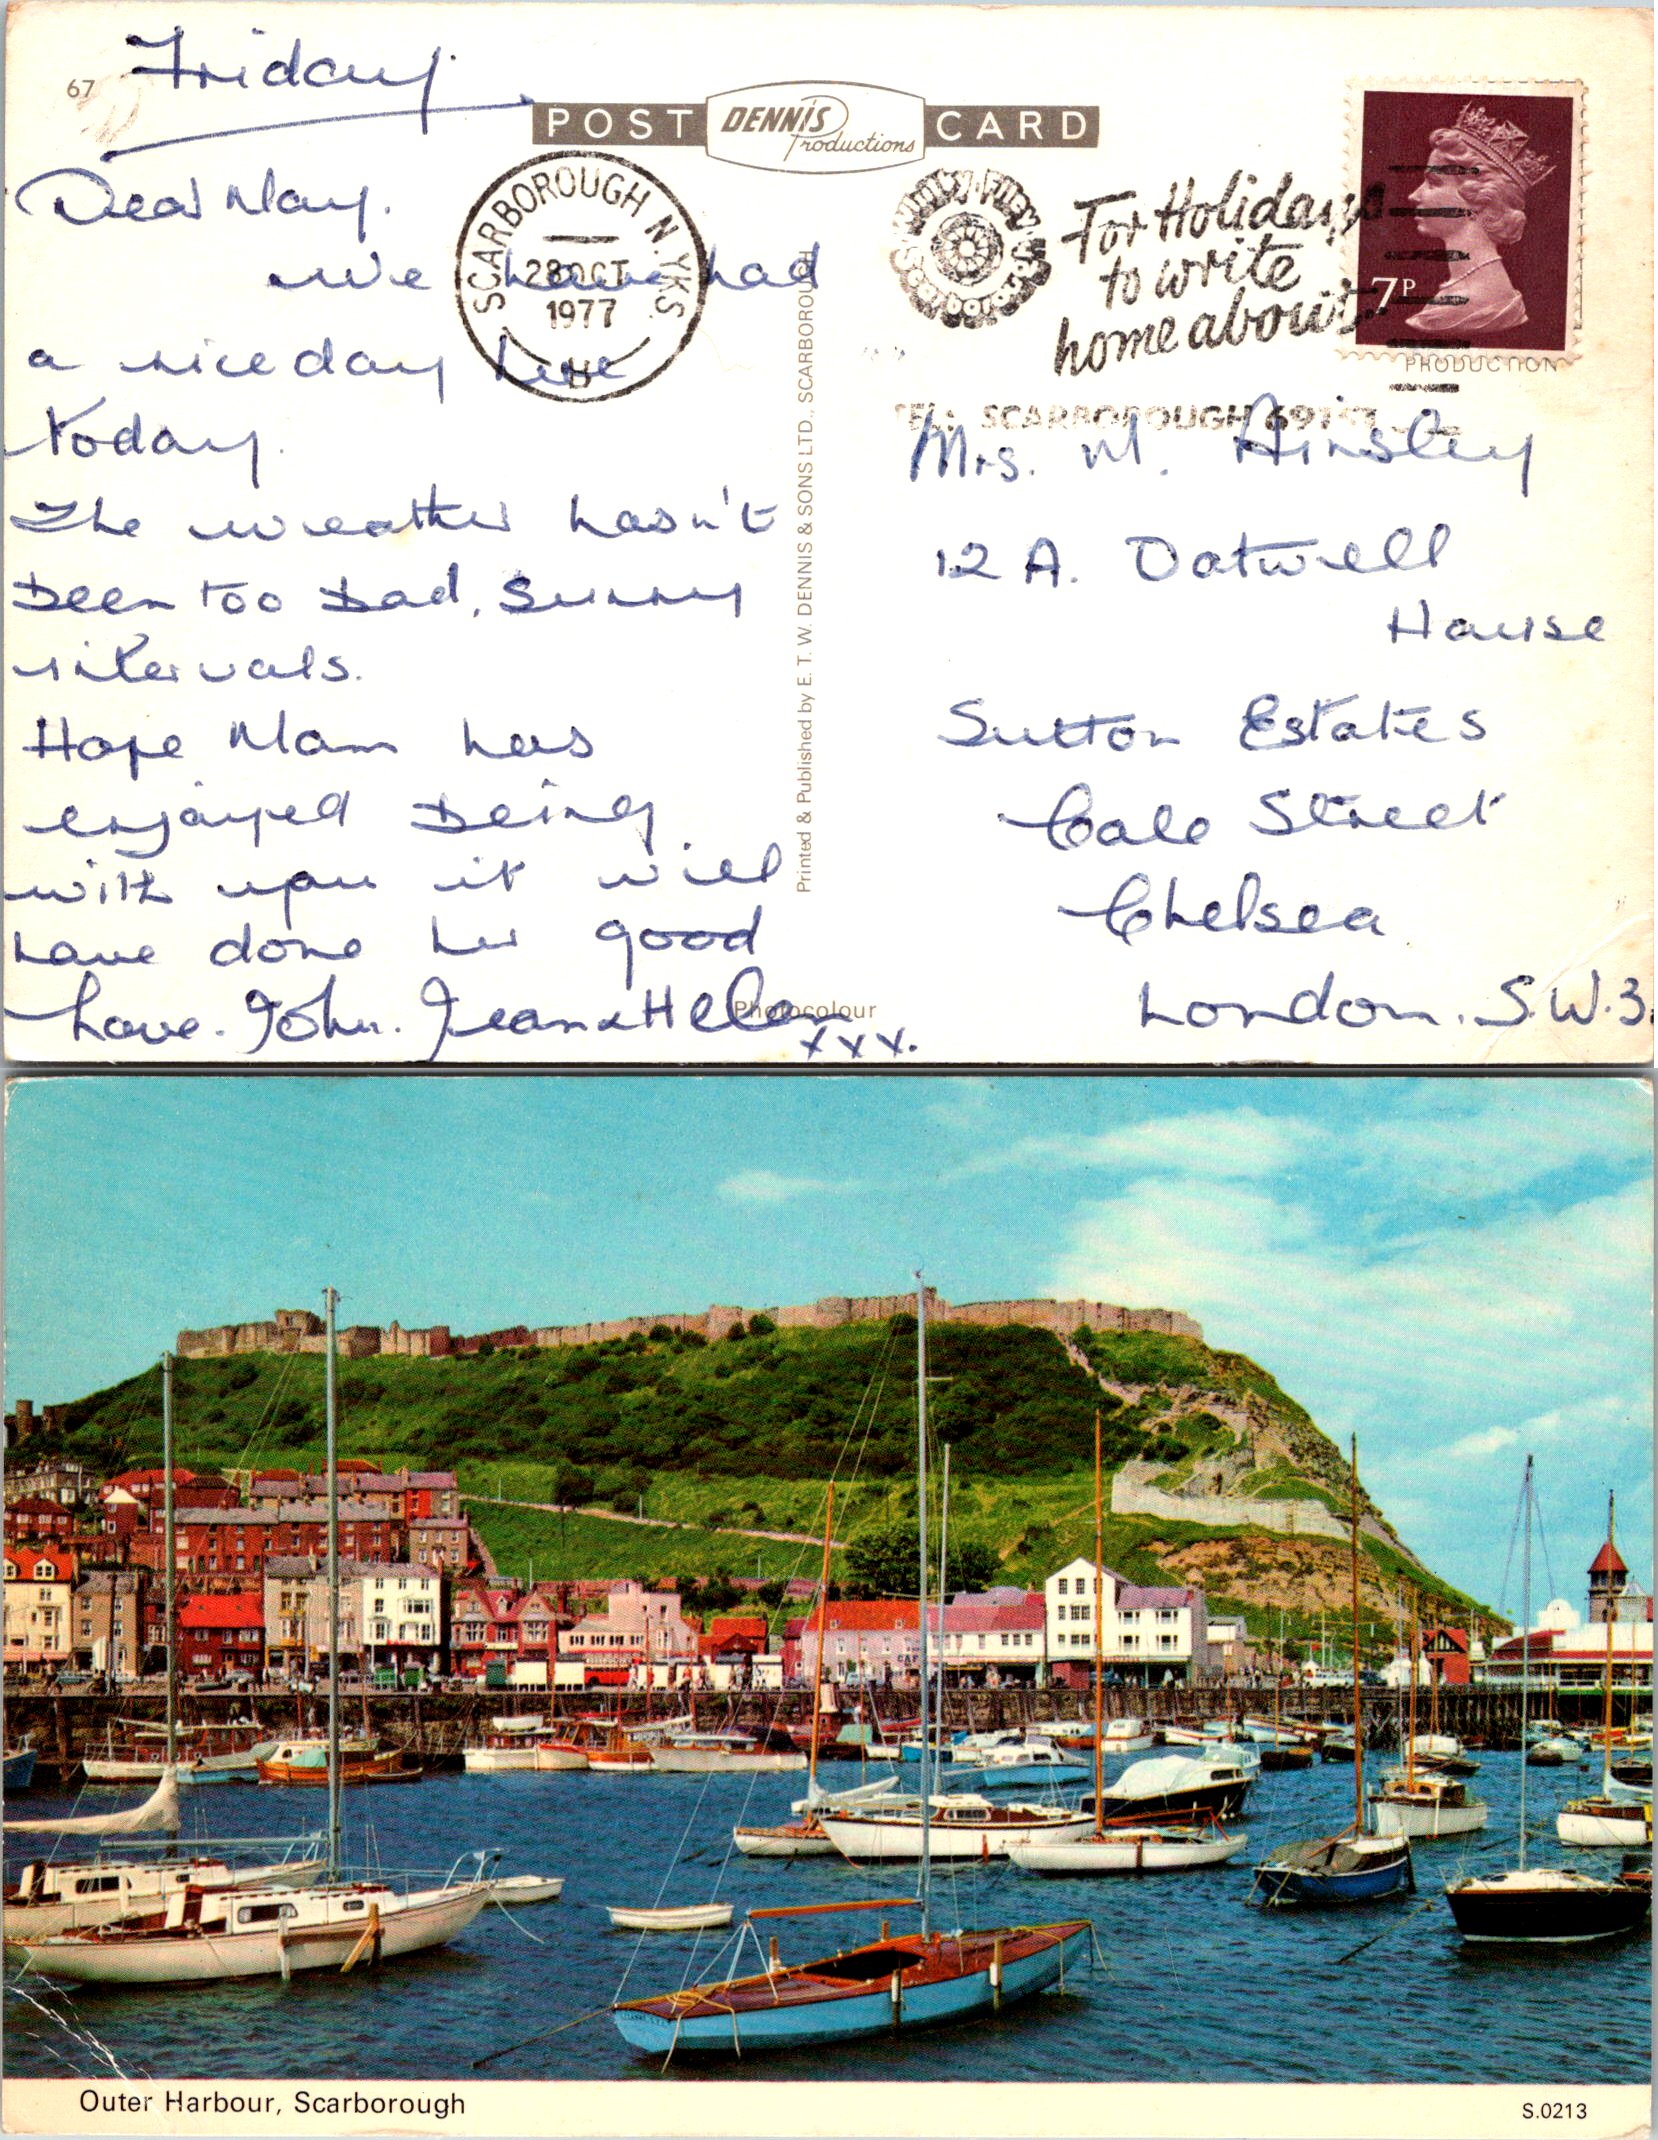 67
Friday.
POST DENNIS Productions CARD
SCARBOROUGH N. YKS.
28 OCT
1977
H
Scarborough
For Holidays
to write
home about.
7P
PRODUCTION
TEL: SCARBOROUGH
Dear May.
We have had
a nice day here
today.
The weather hasn't
been too bad, sunny
intervals.
Hope Mam has
enjoyed being
with you it will
have done her good
Love. John. Jean & Helen
xxx.
Printed & Published by E. T. W. DENNIS & SONS LTD., SCARBOROUGH
Photocolour
Mrs. M. Ainsley
12 A. Oatwell
House
Sutton Estates
Cale Street
Chelsea
London. S.W.3.
Outer Harbour, Scarborough
S.0213